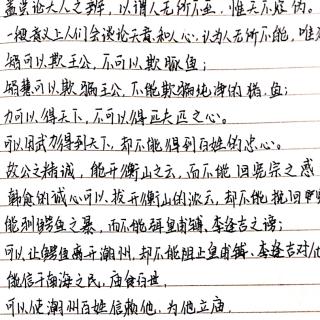 盖尝论天人之辨,以谓人无所不至,惟天不容伪。
一般意义上人们会谈论天意和人心,认为人无所不能,唯
智可以欺王公,不可以欺豚鱼;
智慧可以欺骗王公,不能欺骗纯净的猪,鱼;
力可以得天下,不可以得匹夫匹妇之心。
可以用武力得到天下,却不能得到百姓的忠心。
故公之精诚,能开衡山之云,而不能回宪宗之惑
韩愈的诚心可以拨开衡山的浓云,却不能挽回
能驯鳄鱼之暴,而不能弭皇甫镈、李逢吉之谤;
可以让鳄鱼离开潮州,却不能阻止皇甫镈、李逢吉对他
能信于南海之民,庙食百世,
可以使潮州百姓信赖他,为他立庙,